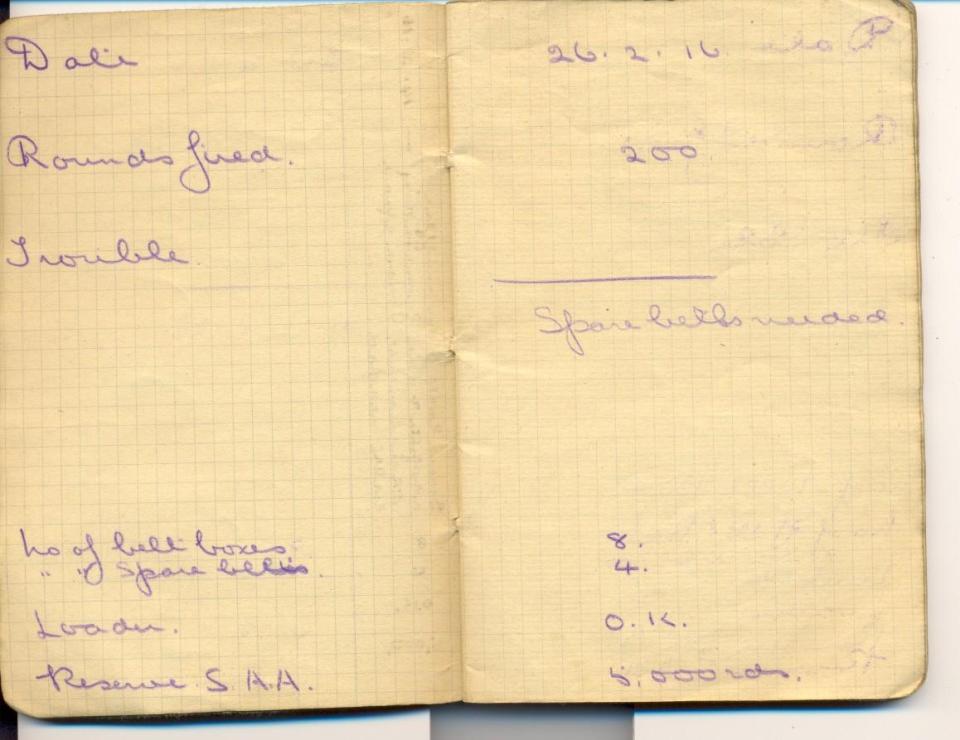 Date 26.2.16
Rounds fired. 200
Trouble
Spare belts needed.
No of belt boxes. 8.
" " Spare belts. 4.
Loader. O.K.
Reserve S.A.A. 5,000rds.